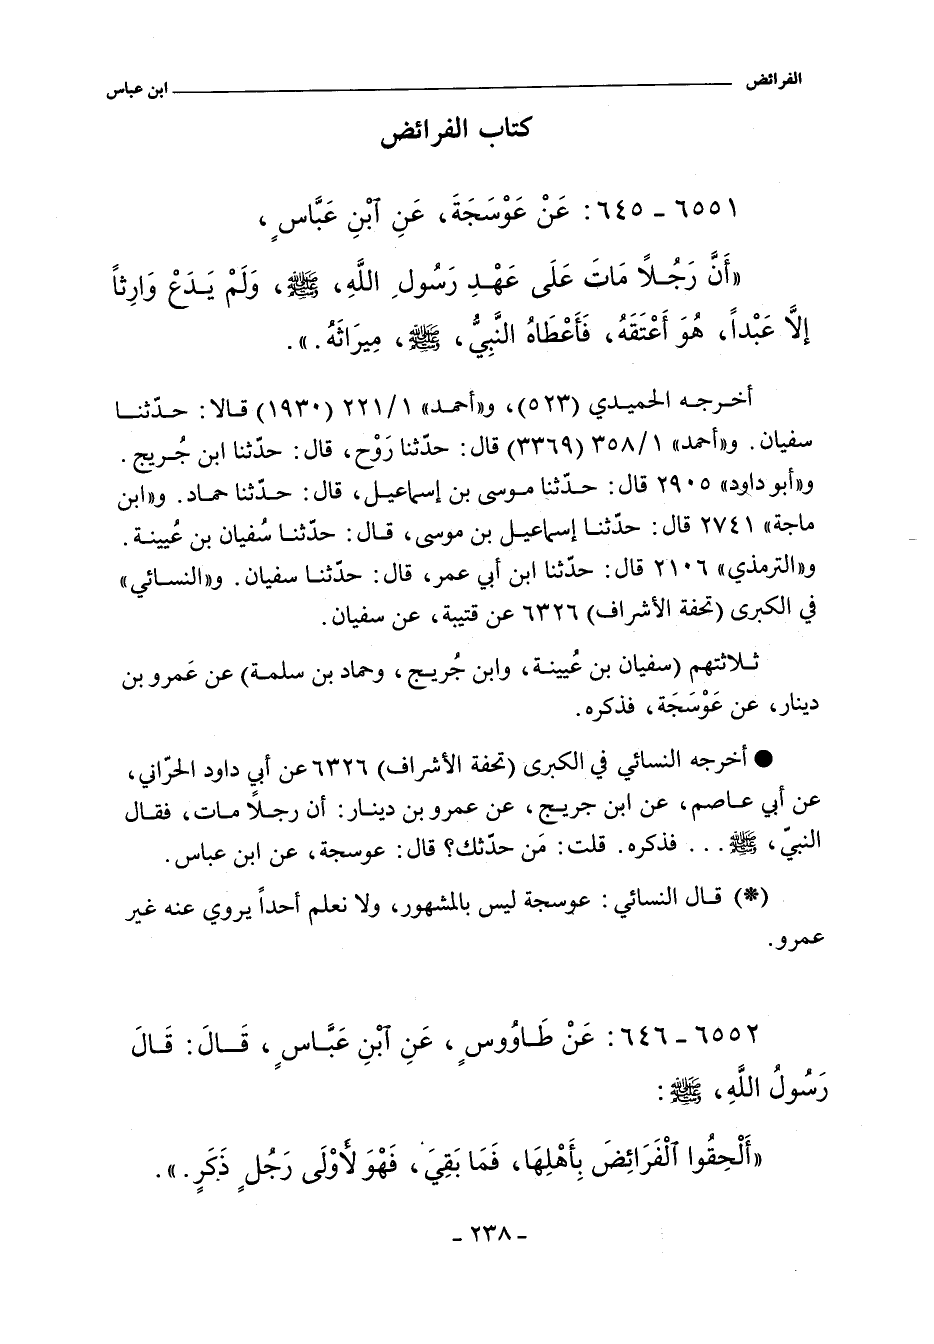 الفرائض ـــــــــــــــــــــــــــــــــــــــــــــــــ ابن عباس
كتاب الفرائض
٦٥٥١ ـ ٦٤٥: عَنْ عَوْسَجَةَ، عَنِ ٱبْنِ عَبَّاسٍ،
«أَنَّ رَجُلاً مَاتَ عَلَى عَهْدِ رَسُولِ اللَّهِ، ﷺ، وَلَمْ يَدَعْ وَارِثاً
إلاَّ عَبْداً، هُوَ أَعْتَقَهُ، فَأَعْطَاهُ النَّبِيُّ، ﷺ، مِيرَاثَهُ.».
أخرجه الحميدي (٥٢٣)، و«أحمد» ٢٢١/١ (١٩٣٠) قالا: حدّثنا
سفيان. و«أحمد» ٣٥٨/١ (٣٣٦٩) قال: حدّثنا رَوْح، قال: حدّثنا ابن جُريج.
و«أبو داود» ٢٩٠٥ قال: حدّثنا موسى بن إسماعيل، قال: حدّثنا حماد. و«ابن
ماجة» ٢٧٤١ قال: حدّثنا إسماعيل بن موسى، قال: حدّثنا سُفيان بن عُيينة.
و«الترمذي» ٢١٠٦ قال: حدّثنا ابن أبي عمر، قال: حدّثنا سفيان. و«النسائي»
في الكبرى (تحفة الأشراف) ٦٣٢٦ عن قتيبة، عن سفيان.
ثلاثتهم (سفيان بن عُيينة، وابن جُريج، وحماد بن سلمة) عن عَمرو بن
دينار، عن عَوْسَجَة، فذكره.
● أخرجه النسائي في الكبرى (تحفة الأشراف) ٦٣٢٦ عن أبي داود الحرّاني،
عن أبي عاصم، عن ابن جريج، عن عمرو بن دينار: أن رجلاً مات، فقال
النبيّ، ﷺ... فذكره. قلت: مَن حدّثك؟ قال: عوسجة، عن ابن عباس.
(*) قال النسائي: عوسجة ليس بالمشهور، ولا نعلم أحداً يروي عنه غير
عمرو.
٦٥٥٢ ـ ٦٤٦: عَنْ طَاوُوسٍ، عَنِ ٱبْنِ عَبَّاسٍ، قَالَ: قَالَ
رَسُولُ اللَّهِ، ﷺ:
«أَلْحِقُوا ٱلْفَرَائِضَ بِأَهْلِهَا، فَمَا بَقِيَ، فَهُوَ لأَوْلَى رَجُلٍ ذَكَرٍ.».
ـ ٢٣٨ ـ